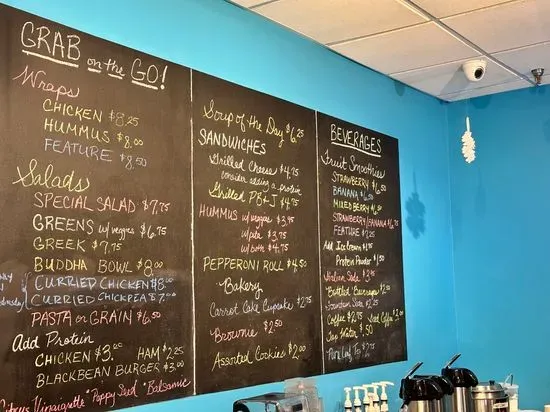 GRAB on the GO!
Wraps
CHICKEN $8.25
HUMMUS $8.00
FEATURE $8.50
Salads
SPECIAL SALAD $7.75
GREENS w/ veggies $6.75
GREEK $7.75
BUDDHA BOWL $8.00
CURRIED CHICKEN $8.00
CURRIED CHICKPEA $7.00
PASTA or GRAIN $6.50
Add Protein
CHICKEN $3.00 HAM $2.25
BLACKBEAN BURGER $3.00
Citrus Vinaigrette "Poppy Seed "Balsamic
Soup of the Day $6.25
SANDWICHES
Grilled Cheese $4.75
consider adding a protein
Grilled PB+J $4.75
HUMMUS w/ veggies $3.95
w/ pita $3.75
w/ both $4.75
PEPPERONI ROLL $4.50
Bakery
Carrot Cake Cupcake $2.75
Brownie $2.50
Assorted Cookies $2.00
BEVERAGES
Fruit Smoothies
STRAWBERRY $6.50
BANANA $6.50
MIXED BERRY $6.50
STRAWBERRY/BANANA $6.75
FEATURE $7.25
Add Ice Cream
Protein Powder
Italian Soda
"Bottled" Beverages
Fountain Soda
COFFEE $2.75 Iced Coffee
Water $.50